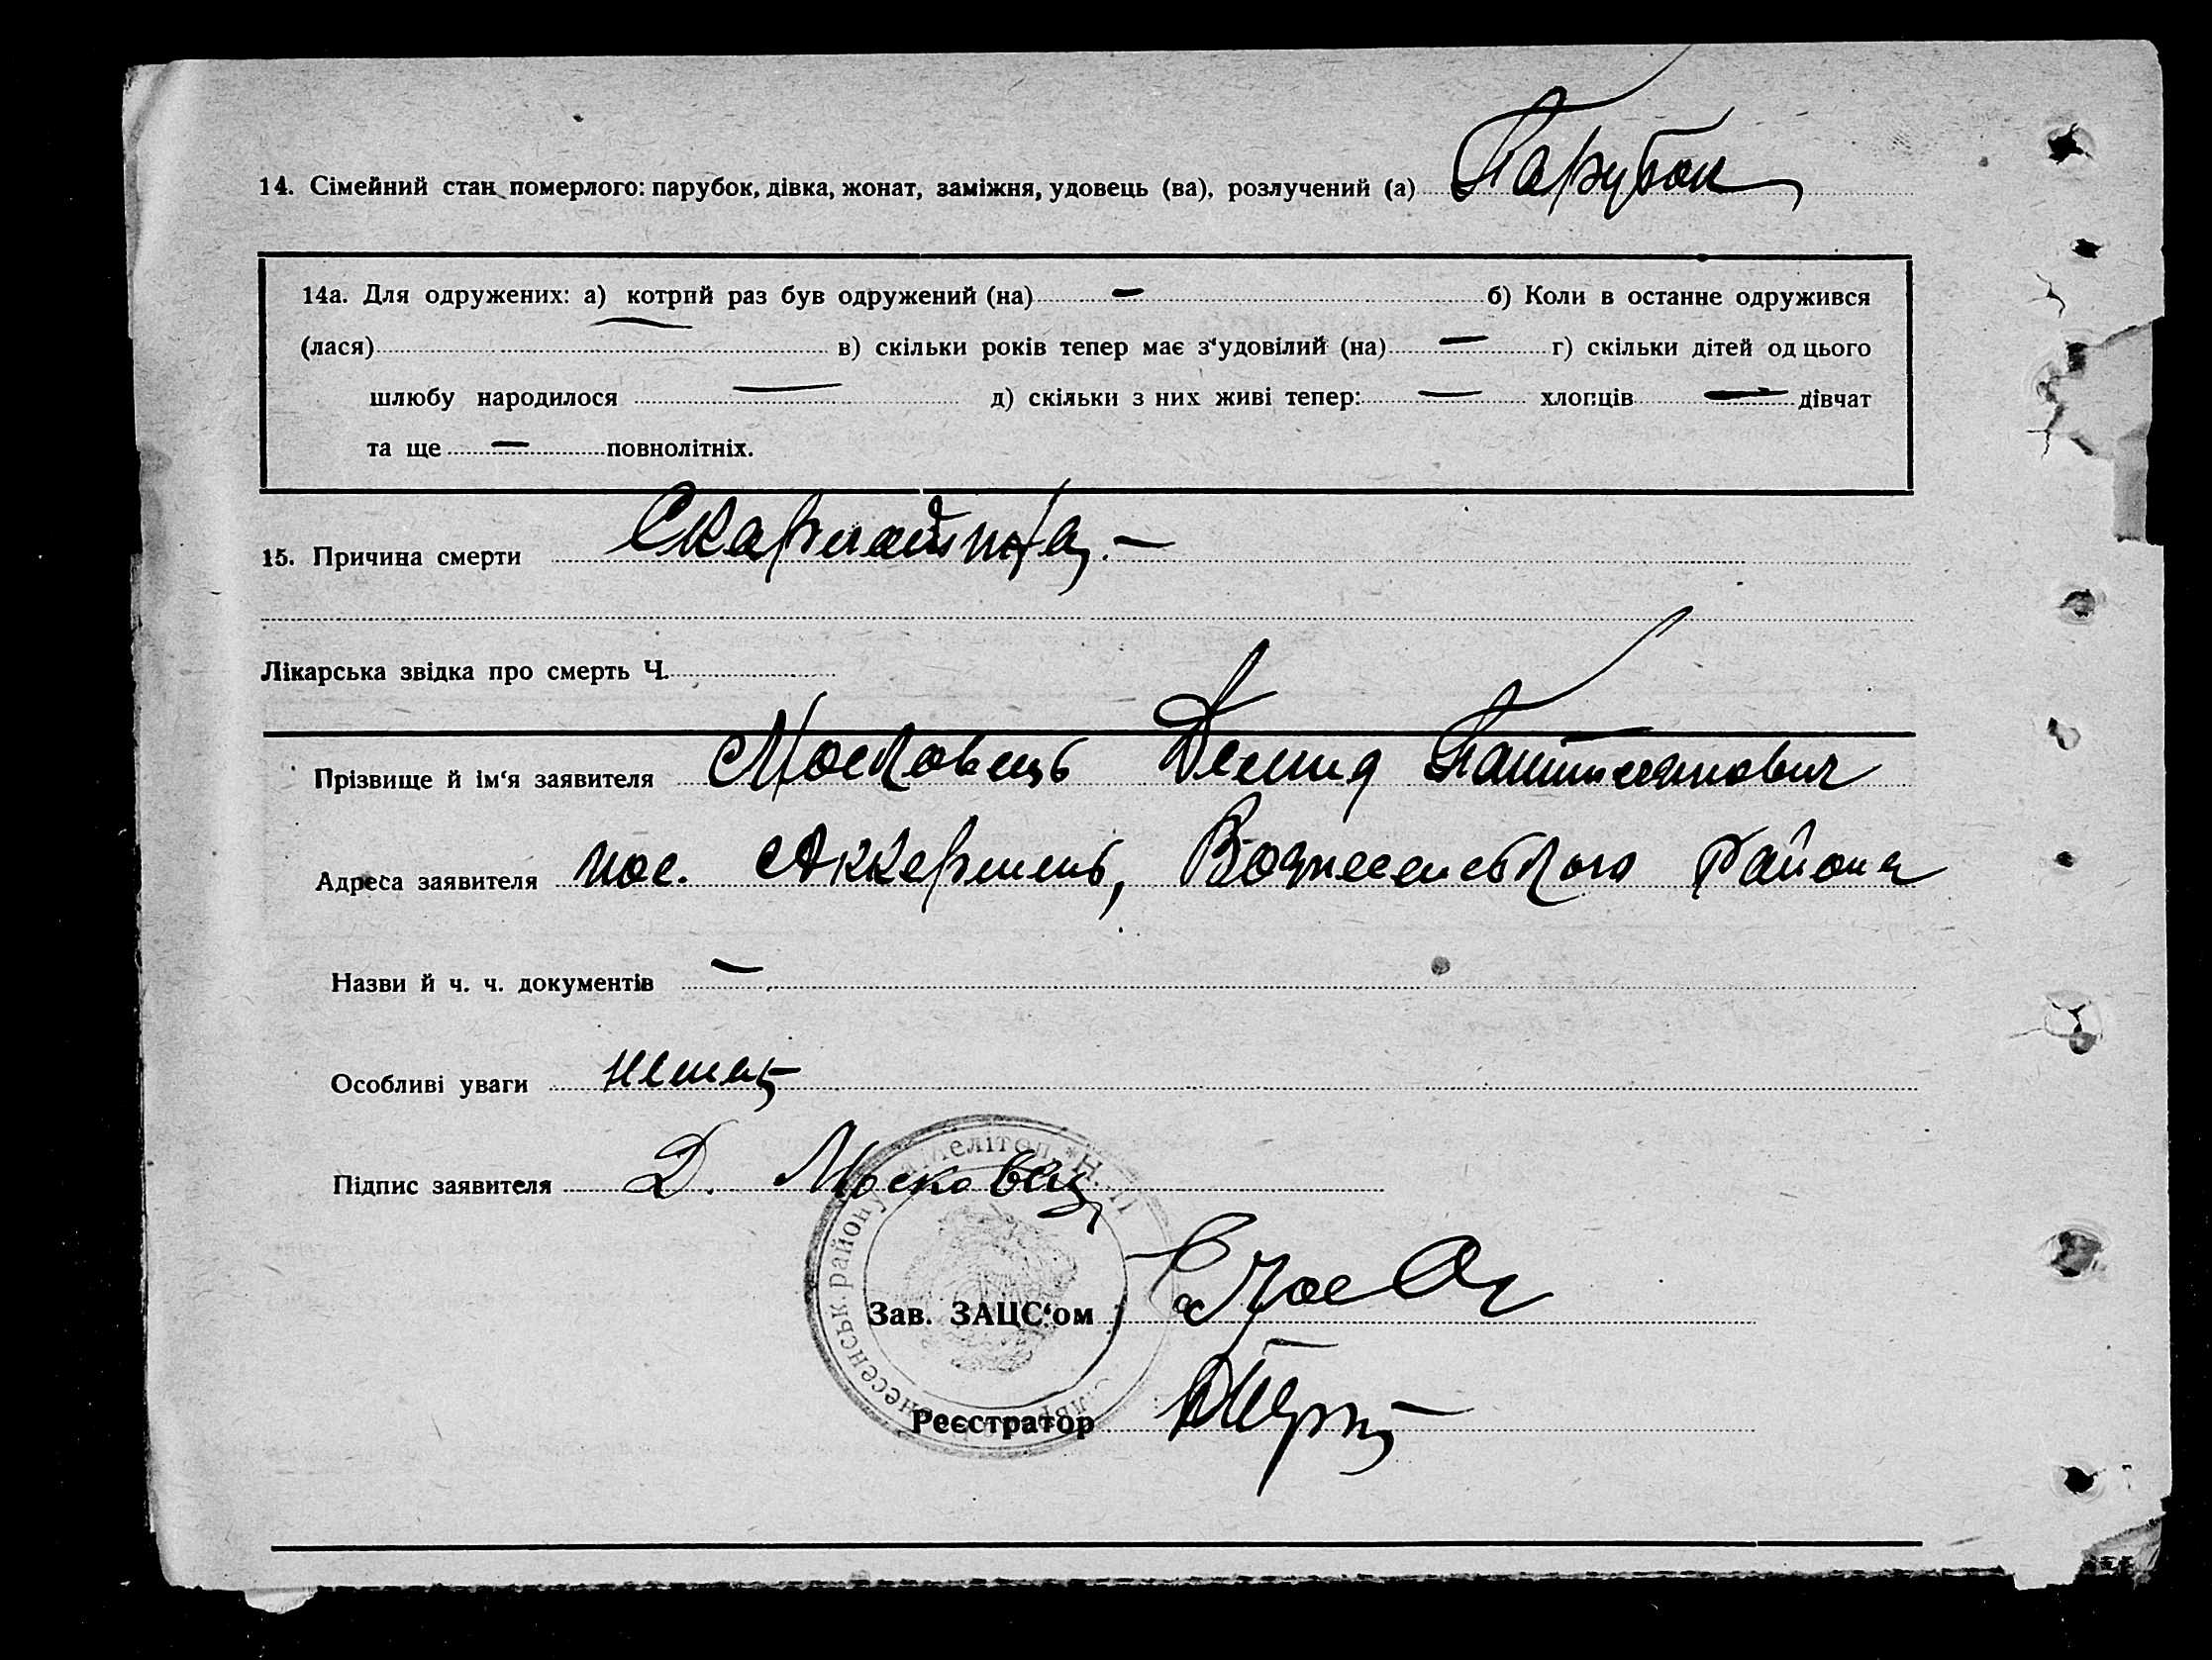 14. Сімейний стан померлого: парубок, дівка, жонат, заміжня, удовець (ва), розлучений (а) Парубок
14а. Для одружених: а) котрий раз був одружений (на) — б) Коли в останнє одружився
(лася) — в) скільки років тепер має з‘удовілий (на) — г) скільки дітей од цього
шлюбу народилося — д) скільки з них живі тепер: — хлопців — дівчат
та ще — повнолітніх.
15. Причина смерти Скарлатина. —
Лікарська звідка про смерть Ч.
Прізвище й ім‘я заявителя Московець Демид
Адреса заявителя пос. Аккермень, Вознесенського района
Назви й ч. ч. документів —
Особливі уваги немає
Підпис заявителя Д. Московец
Зав. ЗАЦС‘ом
Реєстратор